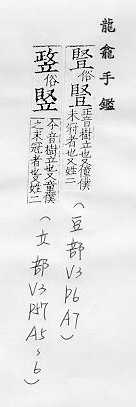 龍龕手鑑
俗豎正音樹立也又僮僕
未冠者也又姓二
(豆部V3P6A7)
俗竪音樹立也又童僕
未冠者也又姓二
(立部V3P47A5~6)